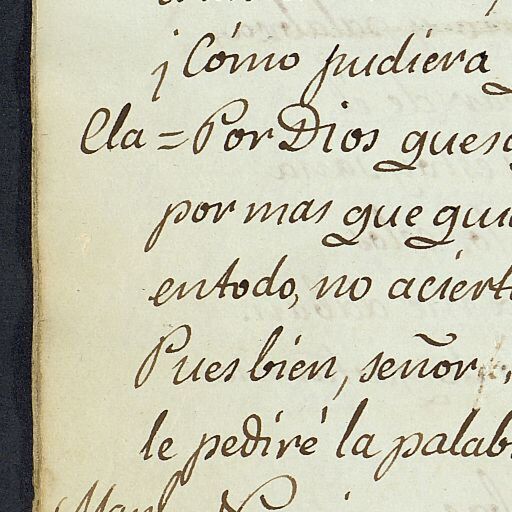 ¡Cómo pudiera
Cla = Por Dios que s
por mas que qui
en todo, no aciert
Pues bien, señor,
le pediré la palab